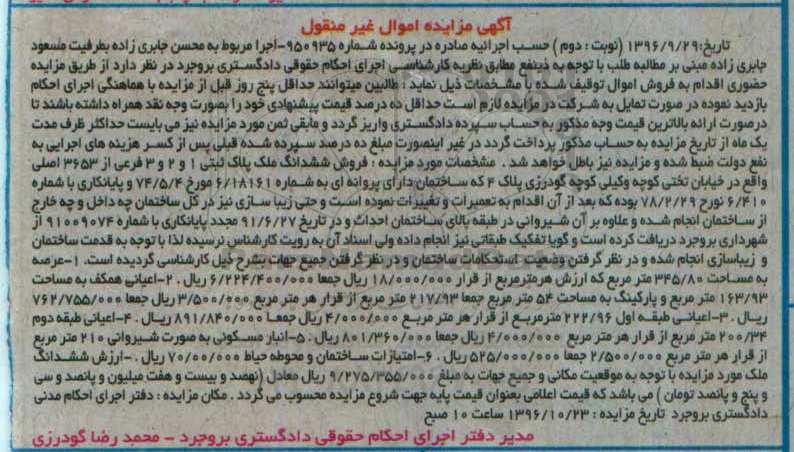 آگهی مزایده اموال غیر منقول
تاریخ:۱۳۹۶/۹/۲۹ (نوبت : دوم ) حسب اجرائیه صادره در پرونده شماره ۹۵۰۹۳۵-اجرا مربوط به محسن جابری زاده بطرفیت مسعود
جابری زاده مبنی بر مطالبه طلب با توجه به ذینفع مطابق نظریه کارشناسی اجرای احکام حقوقی دادگستری بروجرد در نظر دارد از طریق مزایده
حضوری اقدام به فروش اموال توقیف شده با مشخصات ذیل نماید : طالبین میتوانند حداقل پنج روز قبل از مزایده با هماهنگی اجرای احکام
بازدید نموده در صورت تمایل به شرکت در مزایده لازم است حداقل ده درصد قیمت پیشنهادی خود را بصورت وجه نقد همراه داشته باشند تا
درصورت ارائه بالاترین قیمت وجه مذکور به حساب سپرده دادگستری واریز گردد و مابقی ثمن مورد مزایده نیز می بایست حداکثر ظرف مدت
یک ماه از تاریخ مزایده به حساب مذکور پرداخت گردد در غیر اینصورت مبلغ ده درصد سپرده شده قبلی پس از کسر هزینه های اجرایی به
نفع دولت ضبط شده و مزایده نیز باطل خواهد شد . مشخصات مورد مزایده : فروش ششدانگ ملک پلاک ثبتی ۱ و ۲ و ۳ فرعی از ۳۶۵۳ اصلی
واقع در خیابان تختی کوچه وکیلی کوچه گودرزی پلاک ۴ که ساختمان دارای پروانه ای به شماره ۶/۱۸۱۶۱ مورخ ۷۴/۵/۴ و پایانکاری با شماره
۶/۴۱۰ نورح ۷۸/۲/۲۹ بوده که بعد از آن اقدام به تعمیرات و تغییرات نموده است و حتی زیبا سازی نیز در کل ساختمان چه داخل و چه خارج
از ساختمان انجام شده و علاوه بر آن شیروانی در طبقه بالای ساختمان احداث و در تاریخ ۹۱/۶/۲۷ مجدد پایانکاری با شماره ۹۱۰۰۹۰۷۴ از
شهرداری بروجرد دریافت کرده است و گویا تفکیک طبقاتی نیز انجام داده ولی اسناد آن به رویت کارشناس نرسیده لذا با توجه به قدمت ساختمان
و زیباسازی انجام شده و در نظر گرفتن وضعیت استحکامات ساختمان و در نظر گرفتن جمیع جهات بشرح ذیل کارشناسی گردیده است. ۱-عرصه
به مساحت ۳۴۵/۸۰ متر مربع که ارزش هرمترمربع از قرار ۱۸/۰۰۰/۰۰۰ ریال جمعا ۶/۲۲۴/۴۰۰/۰۰۰ ریال . ۲-اعیانی همکف به مساحت
۱۶۳/۹۳ متر مربع و پارکینگ به مساحت ۵۴ متر مربع جمعا ۲۱۷/۹۳ متر مربع از قرار هر متر مربع ۳/۵۰۰/۰۰۰ ریال جمعا ۷۶۲/۷۵۵/۰۰۰
ریال . ۳-اعیانی طبقه اول ۲۲۲/۹۶ مترمربع از قرار هر متر مربع ۴/۰۰۰/۰۰۰ ریال جمعا ۸۹۱/۸۴۰/۰۰۰ ریال . ۴-اعیانی طبقه دوم
۲۰۰/۳۴ متر مربع از قرار هر متر مربع ۴/۰۰۰/۰۰۰ ریال جمعا ۸۰۱/۳۶۰/۰۰۰ ریال . ۵-انبار مسکونی به صورت شیروانی ۲۱۰ متر مربع
از قرار هر متر مربع ۲/۵۰۰/۰۰۰ جمعا ۵۲۵/۰۰۰/۰۰۰ ریال . ۶-امتیازات ساختمان و محوطه حیاط ۷۰/۰۰/۰۰۰ ریال .-ارزش ششدانگ
ملک مورد مزایده با توجه به موقعیت مکانی و جمیع جهات به مبلغ ۹/۲۷۵/۳۵۵/۰۰۰ ریال معادل (نهصد و بیست و هفت میلیون و پانصد و سی
و پنج و پانصد تومان ) می باشد که قیمت اعلامی بعنوان قیمت پایه جهت شروع مزایده محسوب می گردد . مکان مزایده : دفتر اجرای احکام مدنی
دادگستری بروجرد تاریخ مزایده : ۱۳۹۶/۱۰/۲۳ ساعت ۱۰ صبح
مدیر دفتر اجرای احکام حقوقی دادگستری بروجرد – محمد رضا گودرزی